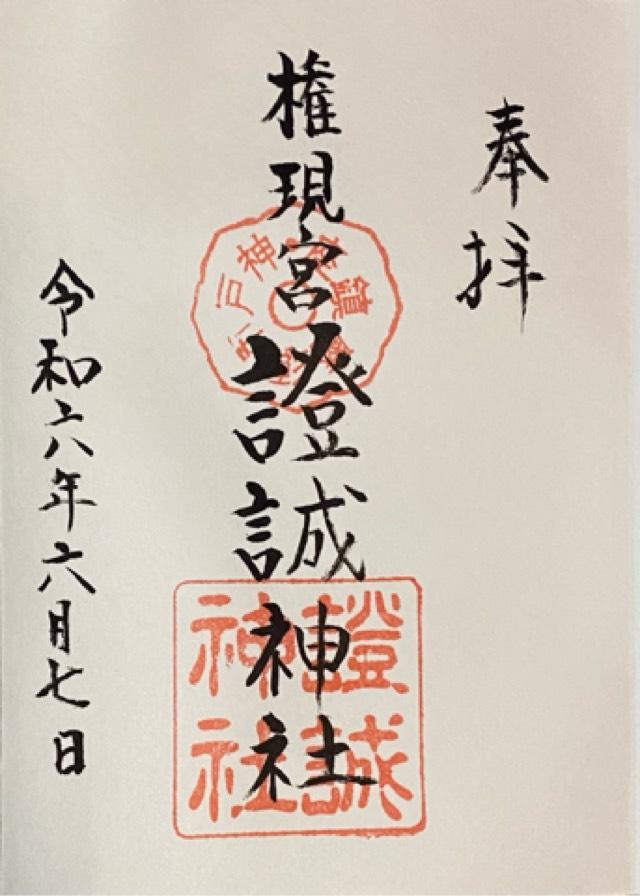 奉拝
権現宮證誠神社
令和六年六月七日
證誠
神社